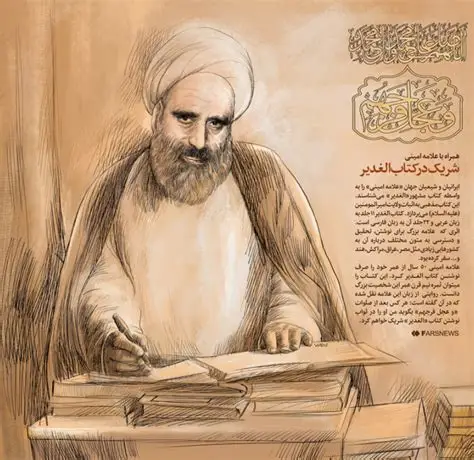 اللهم صل علی محمد و آل محمد
و عجل فرجهم
همراه با علامه امینی
شریک در کتاب الغدیر
ایرانیان و شیعیان جهان «علامه امینی» را به
واسطه کتاب مشهور «الغدیر» می‌شناسند.
این کتاب مذهبی به اثبات ولایت امیرالمومنین
(علیه‌السلام) می‌پردازد. کتاب الغدیر ۱۱ جلد به
زبان عربی و ۲۲ جلد آن به زبان فارسی است.
اثری که علامه بزرگ برای نوشتن، تحقیق
و دسترسی به متون مختلف درباره آن به
کشورهایی زیادی مثل مصر، عراق، مراکش، هند
و... سفر کرده بود.
علامه امینی ۵۰ سال از عمر خود را صرف
نوشتن کتاب الغدیر کرد. این کتاب را
میتوان ثمره نیم قرن عمر این شخصیت بزرگ
دانست. روایتی از زبان این علامه نقل شده
که در آن گفته است: هر کس بعد از صلوات
«و عجل فرجهم» بگوید من او را در ثواب
نوشتن کتاب «الغدیر» شریک خواهم کرد.
FARSNEWS